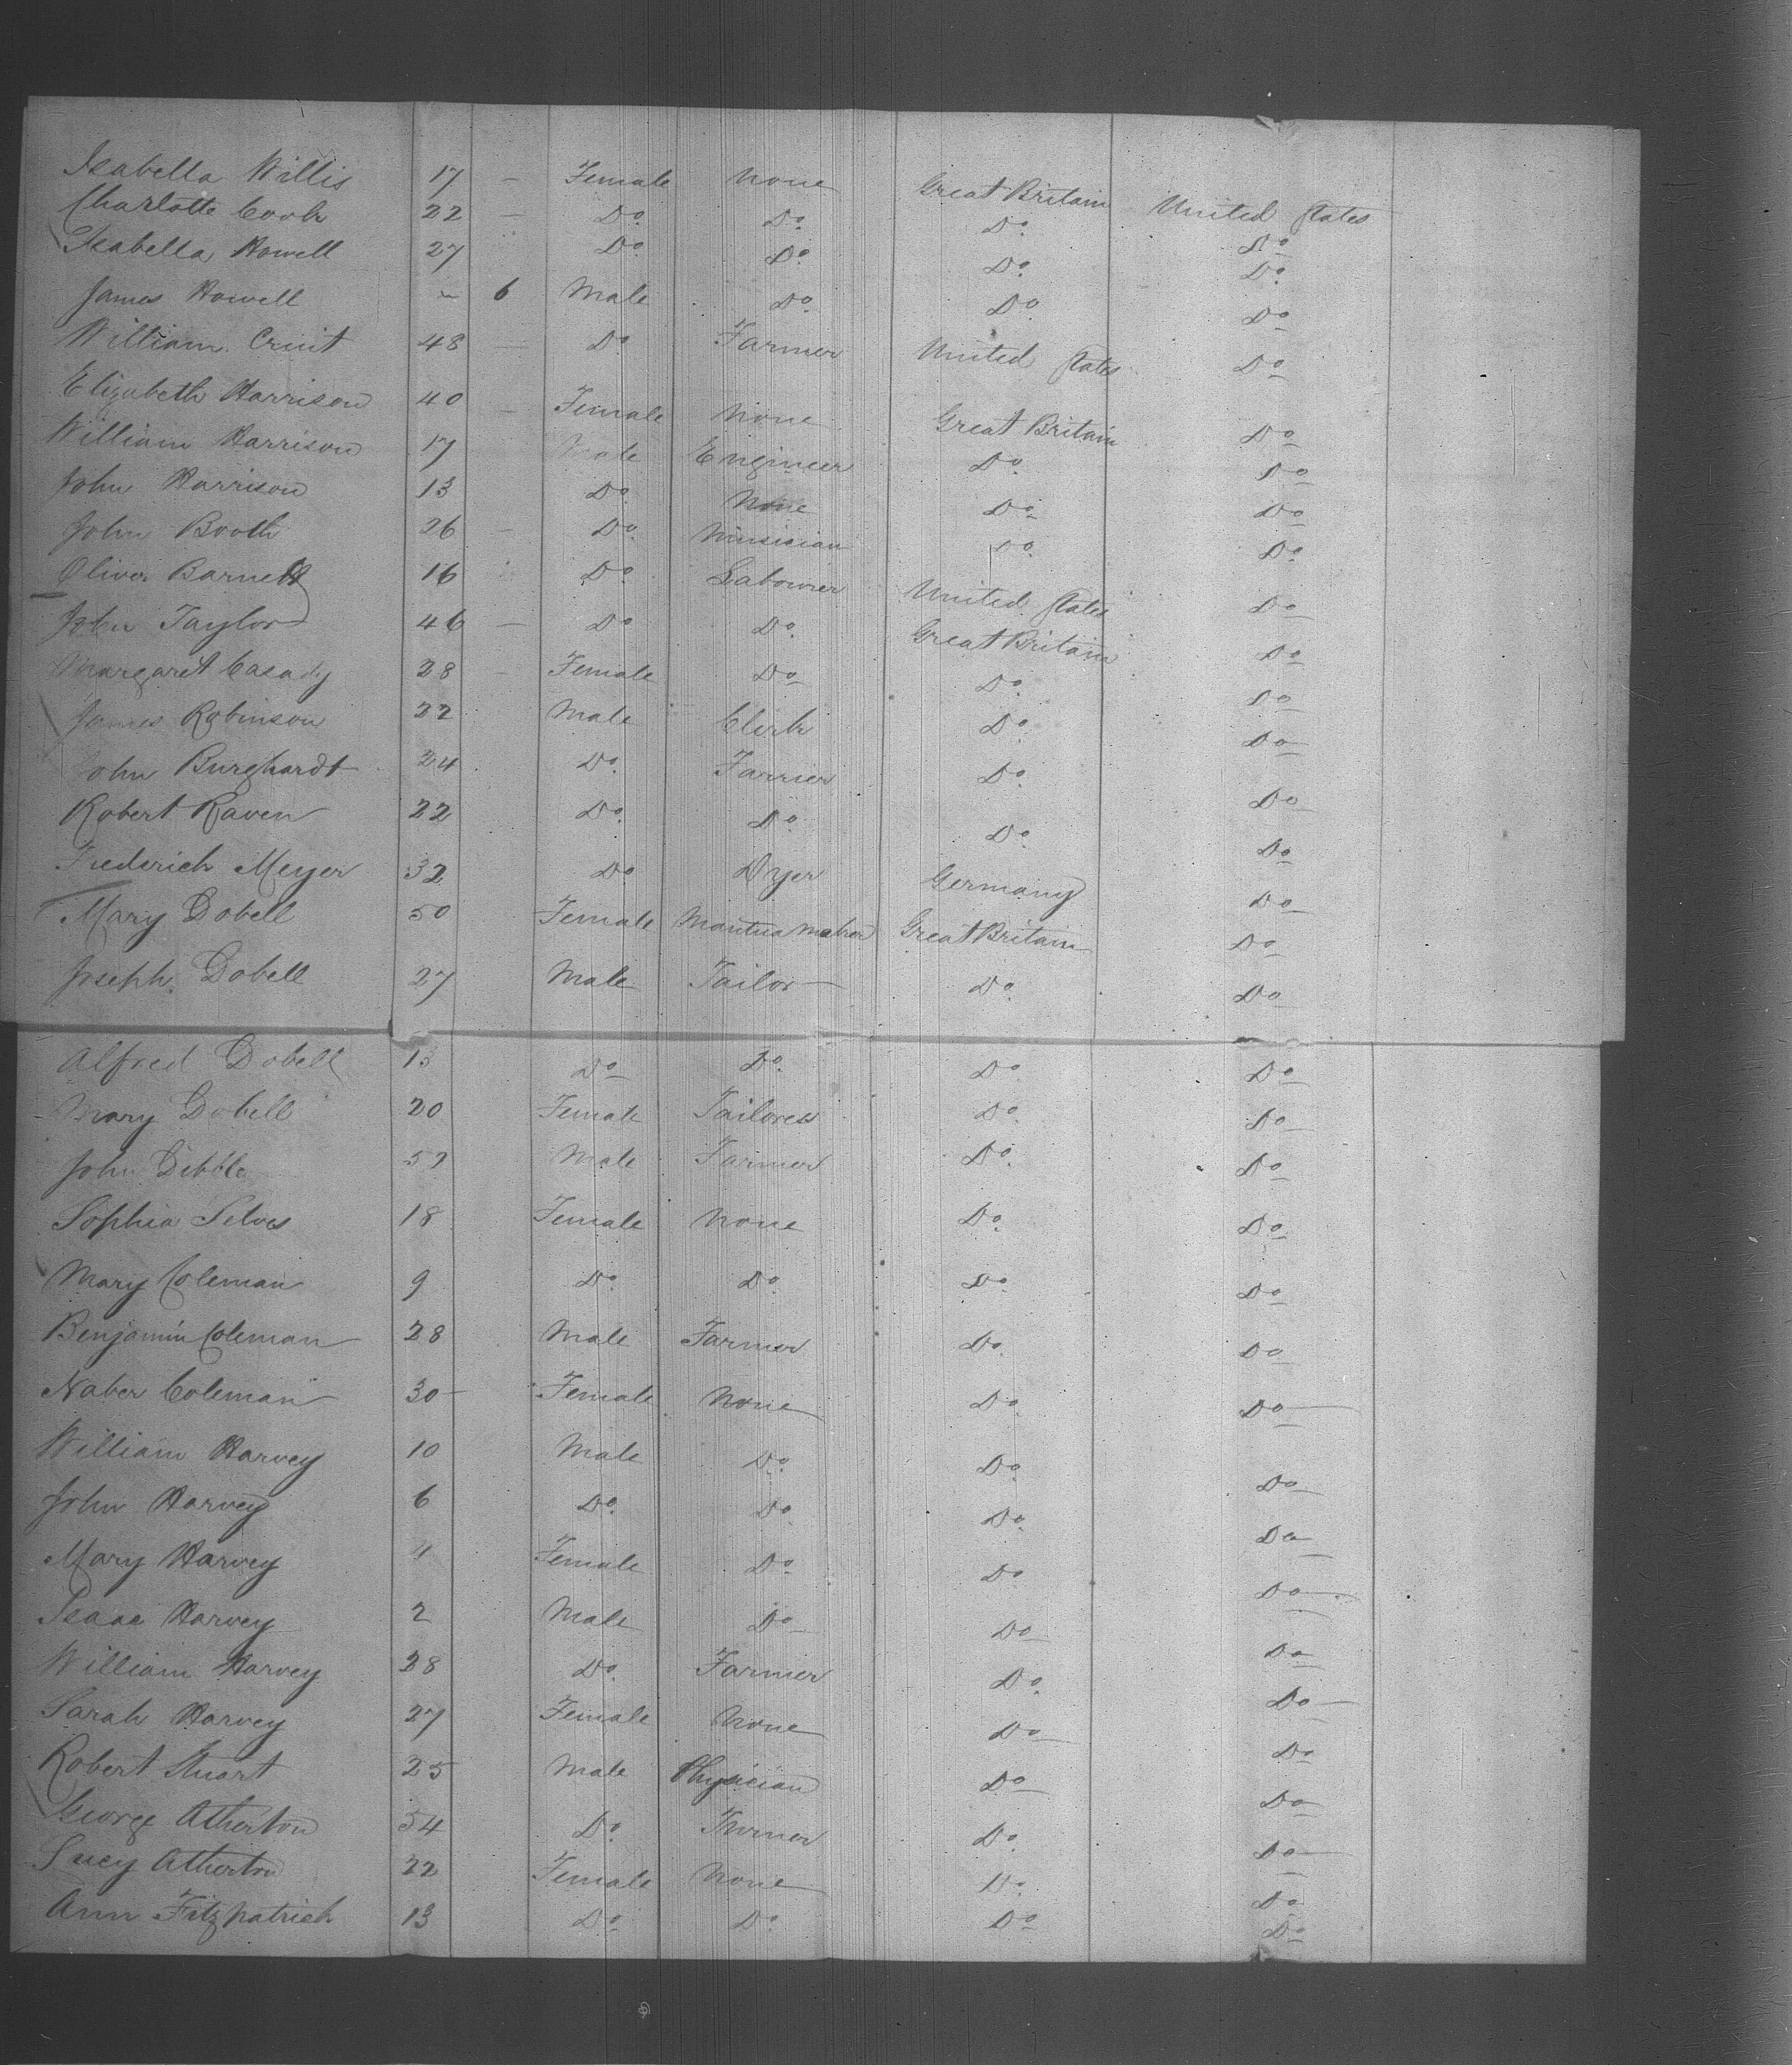 Isabella Willis 17 – Female None Great Britain United States
Charlotte Cook 22 – Do. Do. Do. Do
Isabella Howell 27 Do. Do. Do. Do.
James Howell – 6 Male Do. Do Do
William Cruit 48 — Do. Farmer United States Do
Elizabeth Harrison 40 – Female None Great Britain Do
William Harrison 17 Male Engineer Do. Do
John Harrison 13 Do. None Do. Do
John Booth 26 – Do. Musician Do. Do.
Oliver Barnett 16 Do. Labourer United States Do
John Taylor 46 – Do Do. Great Britain Do
Margaret Casady 28 – Female Do Do. Do
James Robinson 22 Male Clerk Do. Do
John Burghardt 24 Do. Farrier Do. Do
Robert Raven 22 Do. Do. Do. Do
Frederick Meyer 32 Do Dyer Germany Do
Mary Dobell 50 Female Mantua maker Great Britain Do
Joseph Dobell 27 Male Tailor Do. Do
Alfred Dobell 13 Do Do. Do. Do
Mary Dobell 20 Female Tailoress Do. Do
John Dibble Male Farmer Do. Do
Sophia Selves 18 Female None Do. Do.
Mary Coleman 9 Do. Do. Do. Do
Benjamin Coleman 28 Male Farmer Do. Do
Naber Coleman 30 Female None Do. Do
William Harvey 10 Male Do. Do. Do
John Harvey 6 Do. Do. Do. Do
Mary Harvey 4 Female Do. Do. Do
Isaac Harvey 2 Male Do Do Do
William Harvey 28 Do. Farmer Do. Do
Sarah Harvey 27 Female None Do Do
Robert Stuart 25 Male Physician Do Do
George Atherton 54 Do. Turner Do. Do
Lucy Atherton 22 Female None Do. Do
Ann Fitzpatrick 13 Do. Do. Do Do